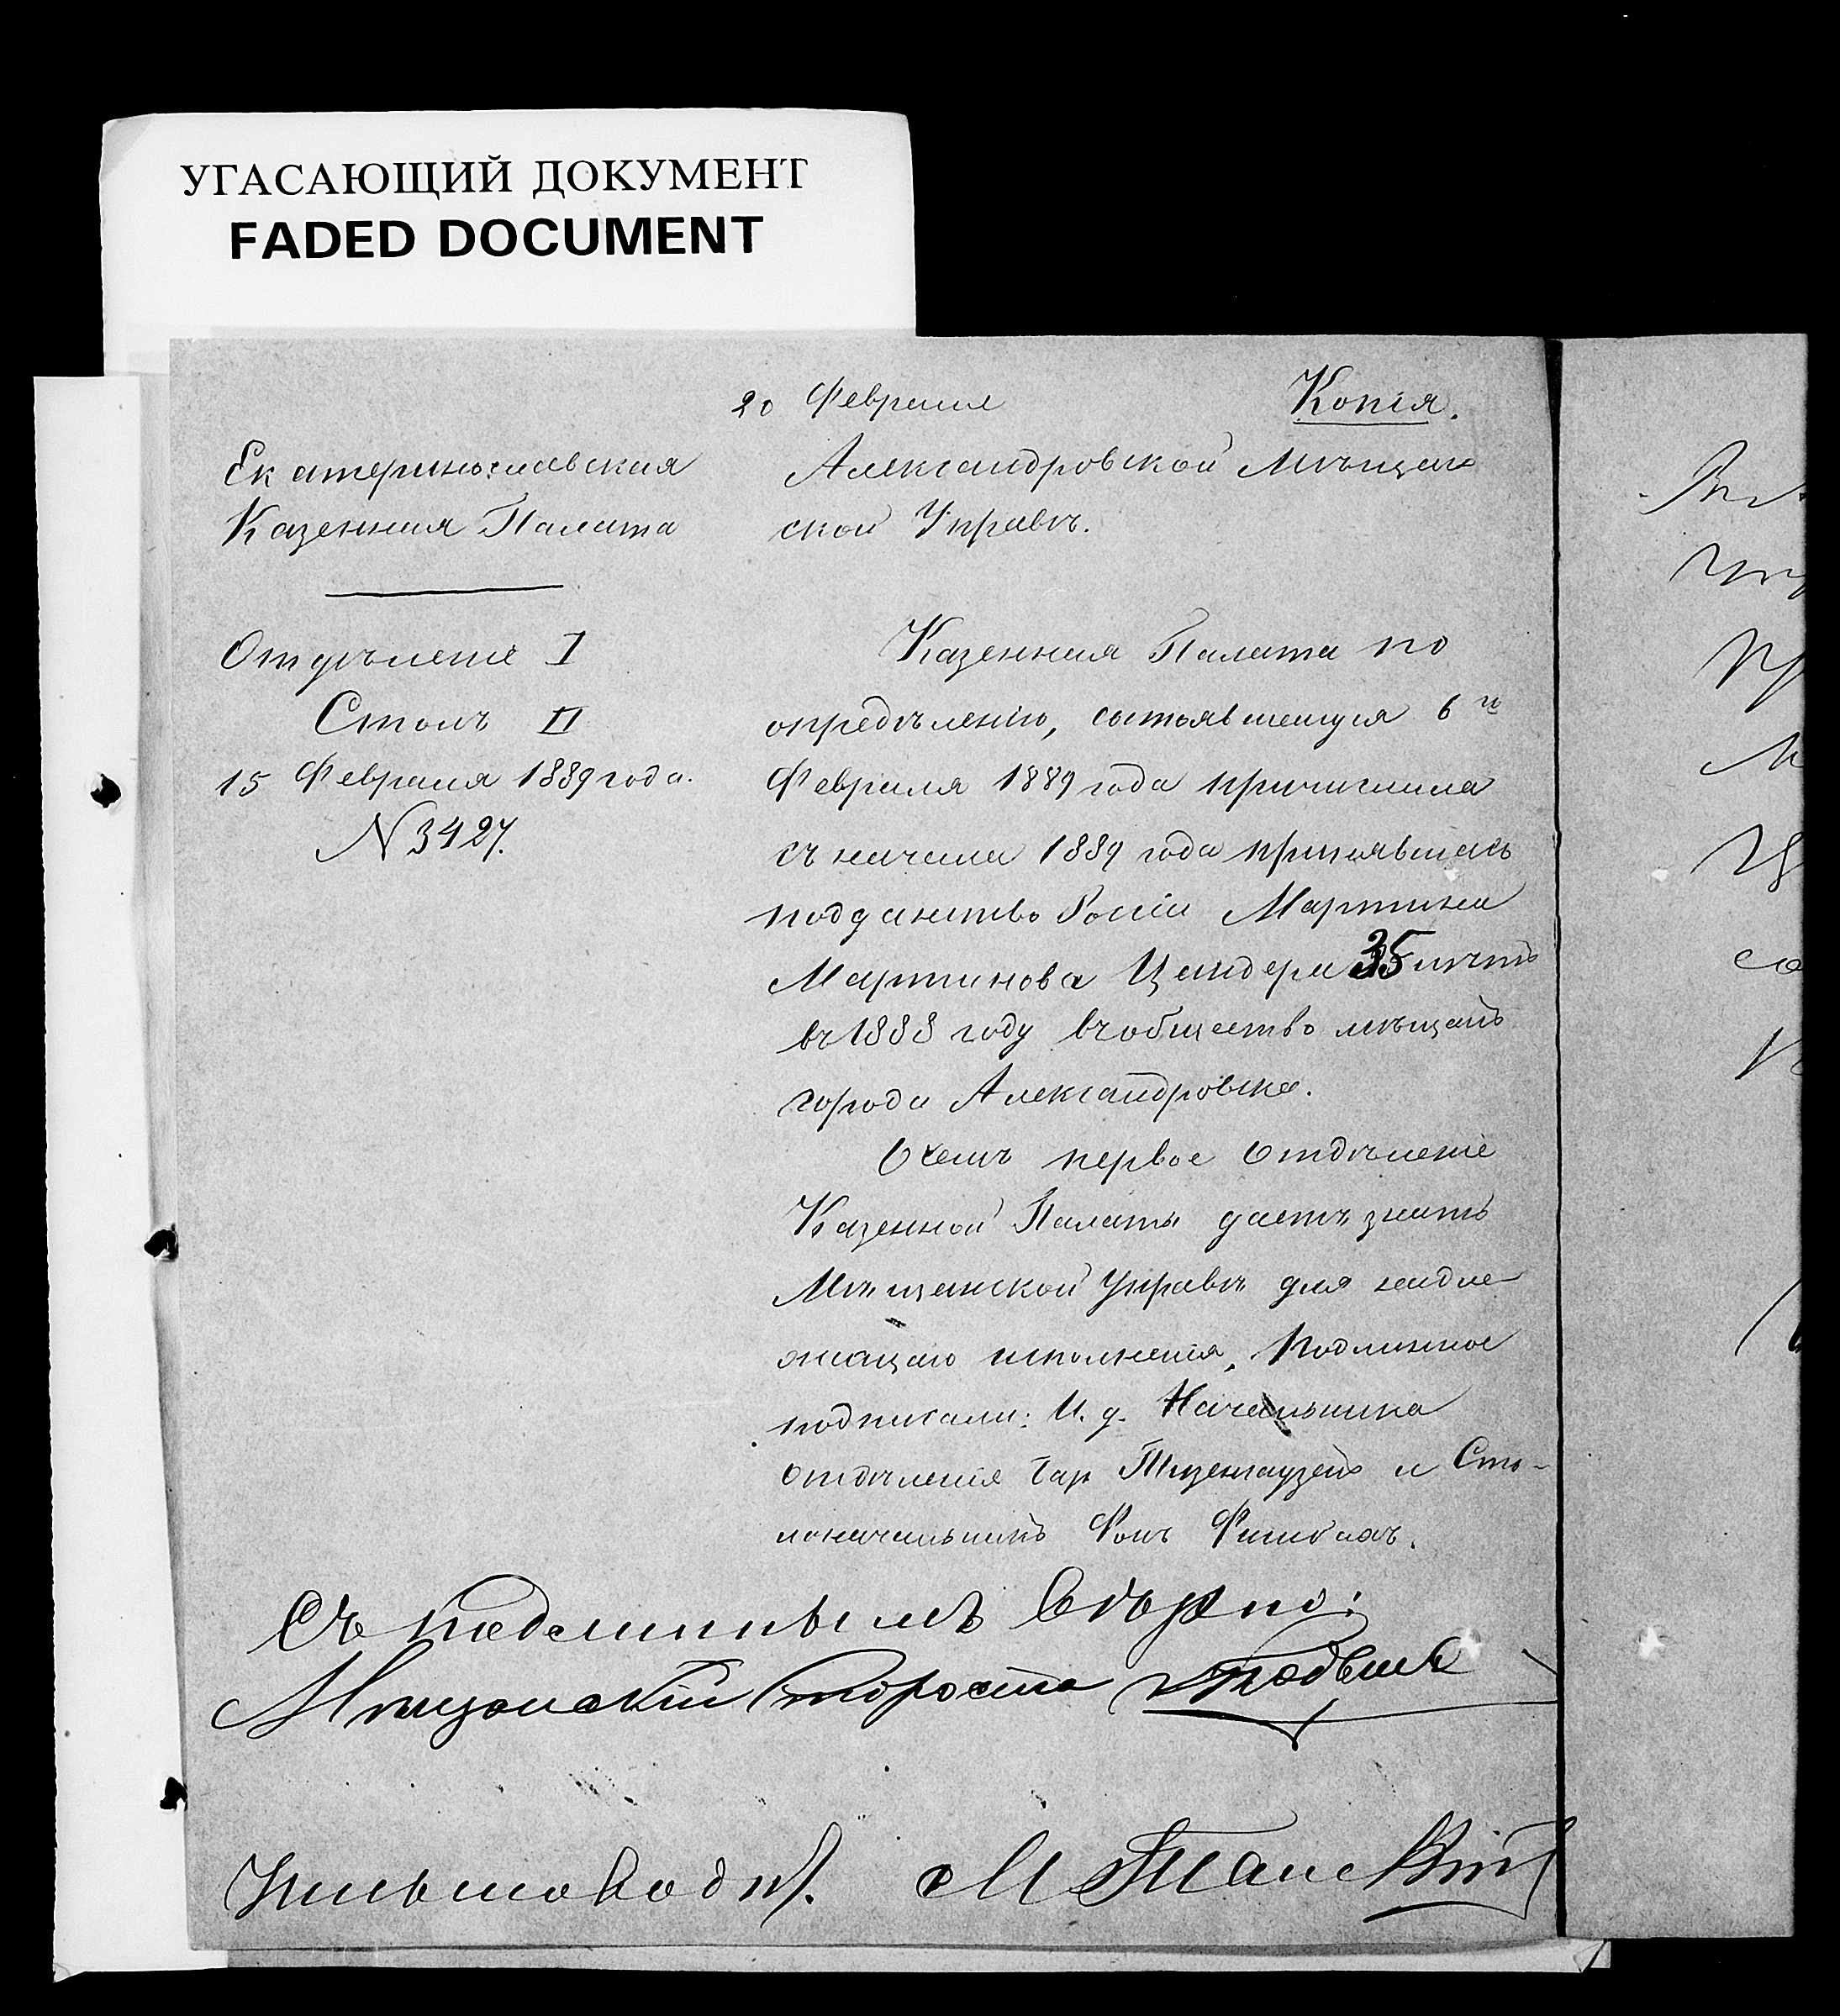 УГАСАЮЩИЙ ДОКУМЕНТ
FADED DOCUMENT
20 Февраля
Копія.
Екатеринославская
Казенная Палата
Отдѣленіе I
Столъ II
15 Февраля 1889 года.
N 3427.
Александровской Мѣщан
ской Управѣ.
Казенная Палата по
опредѣленію, состоявшемуся 6го
Февраля 1889 года причислила
съ начала 1889 года принявшаго
подданство Россіи Мартина
Мартинова Цандера 35 лѣтъ
въ 1888 году въ общество мѣщанъ
города Александровска.
О чемъ первое отдѣленіе
Казенной Палаты даетъ знать
Мѣщанской Управѣ для надле
жащаго исполненія. Подлинное
подписали: И. д. Начальника
отдѣленія Бар Тизенгаузенъ и Сто-
лоначальникъ Фонъ
Съ подлиннымъ вѣрно:
Мѣщанскій Староста
Письмовод